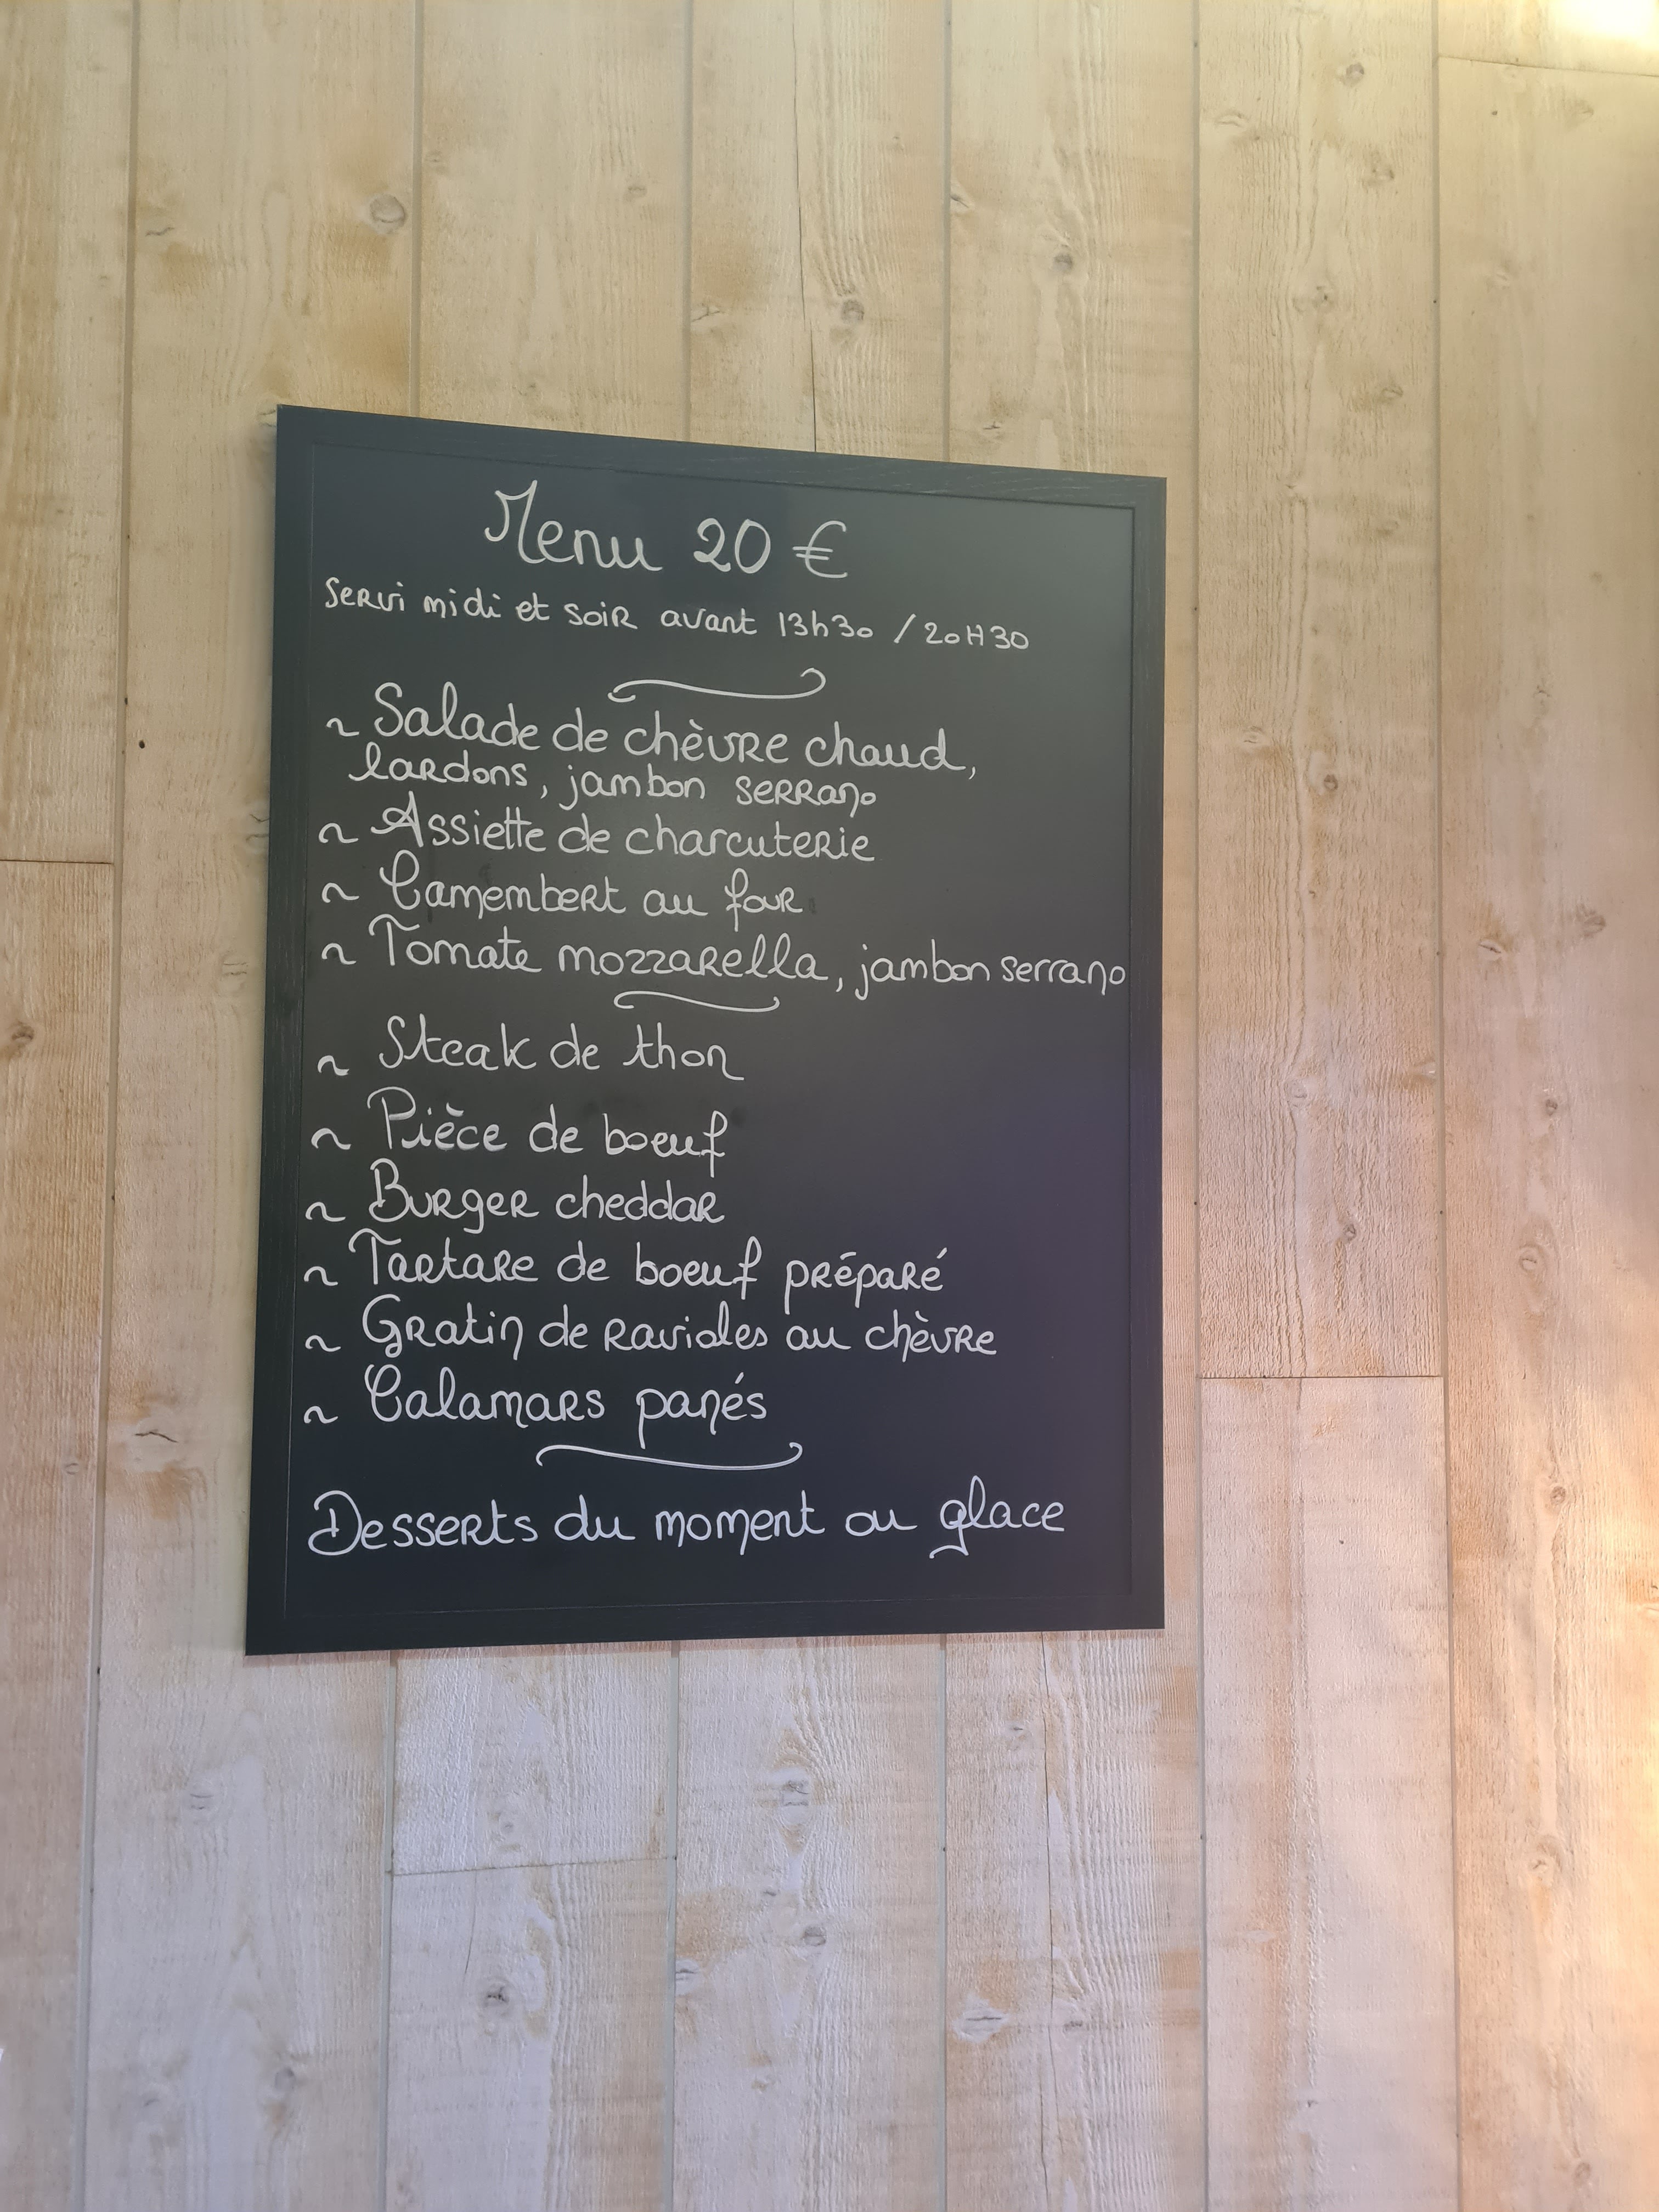 Menu 20 €
Servi midi et soir avant 13h30 / 20H30
~ Salade de chèvre chaud,
lardons, jambon serrano
~ Assiette de charcuterie
~ Camembert au four
~ Tomate mozzarella, jambon serrano
~ Steak de thon
~ Pièce de boeuf
~ Burger cheddar
~ Tartare de boeuf préparé
~ Gratin de ravioles au chèvre
~ Calamars panés
Desserts du moment ou glace